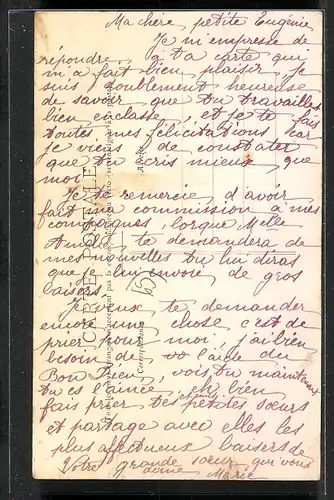 Ma chere petite Eugénie
Je m'empresse de
répondre a ta carte qui
m'a fait bien plaisir je
suis doublement heureuse
de savoir que tu travailles
bien en classe, et je te fais
toutes mes félicitations car
je viens de constater
que tu écris mieux que
moi
Je te remercie d'avoir
fait ma commission a mes
compagnes, lorque Melle
te demandera de
mes nouvelles tu lui diras
que je lui envoie de gros
baisers
Je veux te demander
encore une chose c'est de
prier pour moi, j'ai bien
besoin de l'aide du
Bon Dieu, vois tu maintenant
tu es l'ainée, eh bien
fais prier tes petites sœurs
et partage avec elles les
plus affectueux baisers de
Votre grande sœur qui vous
aime Marie
CARTE POSTALE
Correspondance